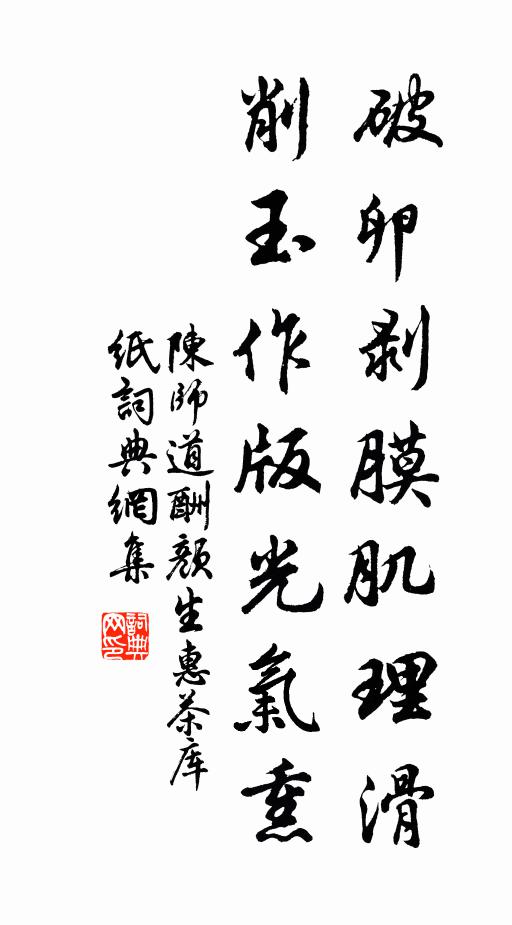 破卵剥膜肌理滑
削玉作版光氣熏
陳師道酬顏生惠茶库
紙詞典網集
詞典
网印